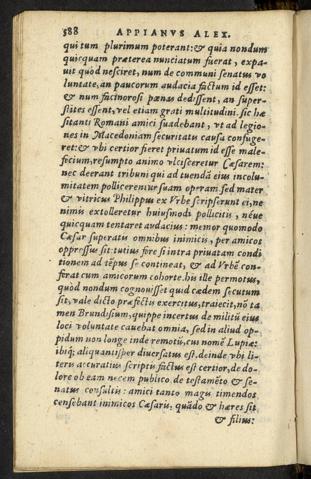 588 APPIANVS ALEX.
qui tum plurimum poterant: & quia nondum
quicquam præterea nunciatum fuerat, expa-
uit quòd nesciret, num de communi senatus vo
luntate, an paucorum audacia factum id esset:
& num facinorosi pœnas dedissent, an super-
stites essent, vel etiam grati multitudini. sic hæ
sitanti Romani amici suadebant, vt ad legio-
nes in Macedoniam securitatis causa confuge-
ret: & vbi certior fieret priuatum id esse male-
ficium, resumpto animo vlcisceretur Cæsarem:
nec deerant tribuni qui ad tuendā eius incolu-
mitatem pollicerentur suam operam. sed mater
& vitricus Philippus ex Vrbe scripserunt ei, ne
nimis extolleretur huiusmodi pollicitis, néue
quicquam tentaret audacius: memor quomodo
Cæsar superatis omnibus inimicis, per amicos
oppressus sit: tutius fore si intra priuatam condi
tionem ad tēpus se contineat, & ad Vrbē con-
ferat cum amicorum cohorte. his ille permotus,
quòd nondum cognouisset quid cædem secutum
sit, vale dicto præfectis exercitus, traiecit, nō ta
men Brundisium, quippe incertus de militū eius
loci voluntate cauebat omnia, sed in aliud op-
pidum non longe inde remotū, cui nomē Lupiæ:
ibíq; aliquantisper diuersatus est. deinde vbi li-
teris accuratius scriptis factus est certior, de do-
lore ob eam necem publico, de testamēto & se-
natus consultis: amici tanto magis timendos
censebant inimicos Cæsaris, quādo & hæres sit
& filius: